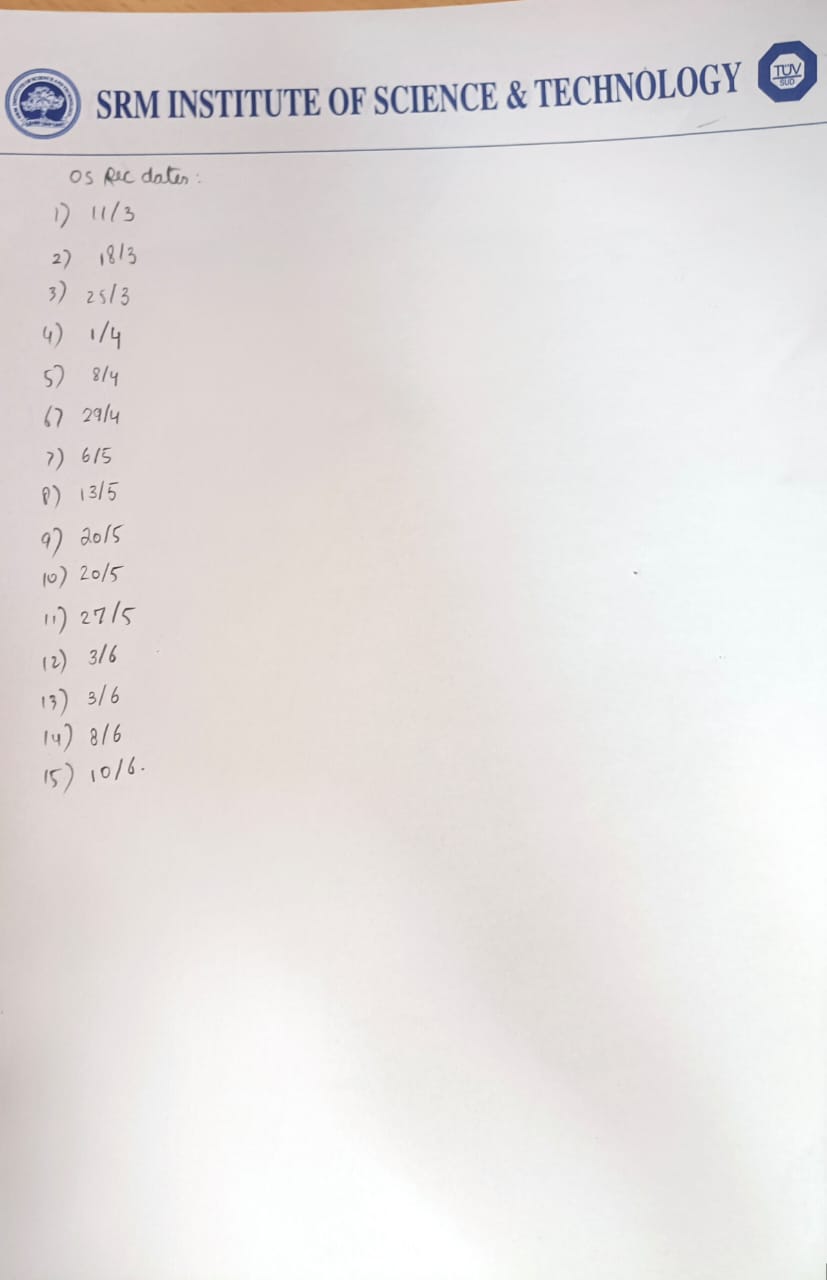 SRM INSTITUTE OF SCIENCE & TECHNOLOGY
TÜV
SÜD
OS Rec dates:
1) 11/3
2) 18/3
3) 25/3
4) 1/4
5) 8/4
6) 29/4
7) 6/5
8) 13/5
9) 20/5
10) 20/5
11) 27/5
12) 3/6
13) 3/6
14) 8/6
15) 10/6.